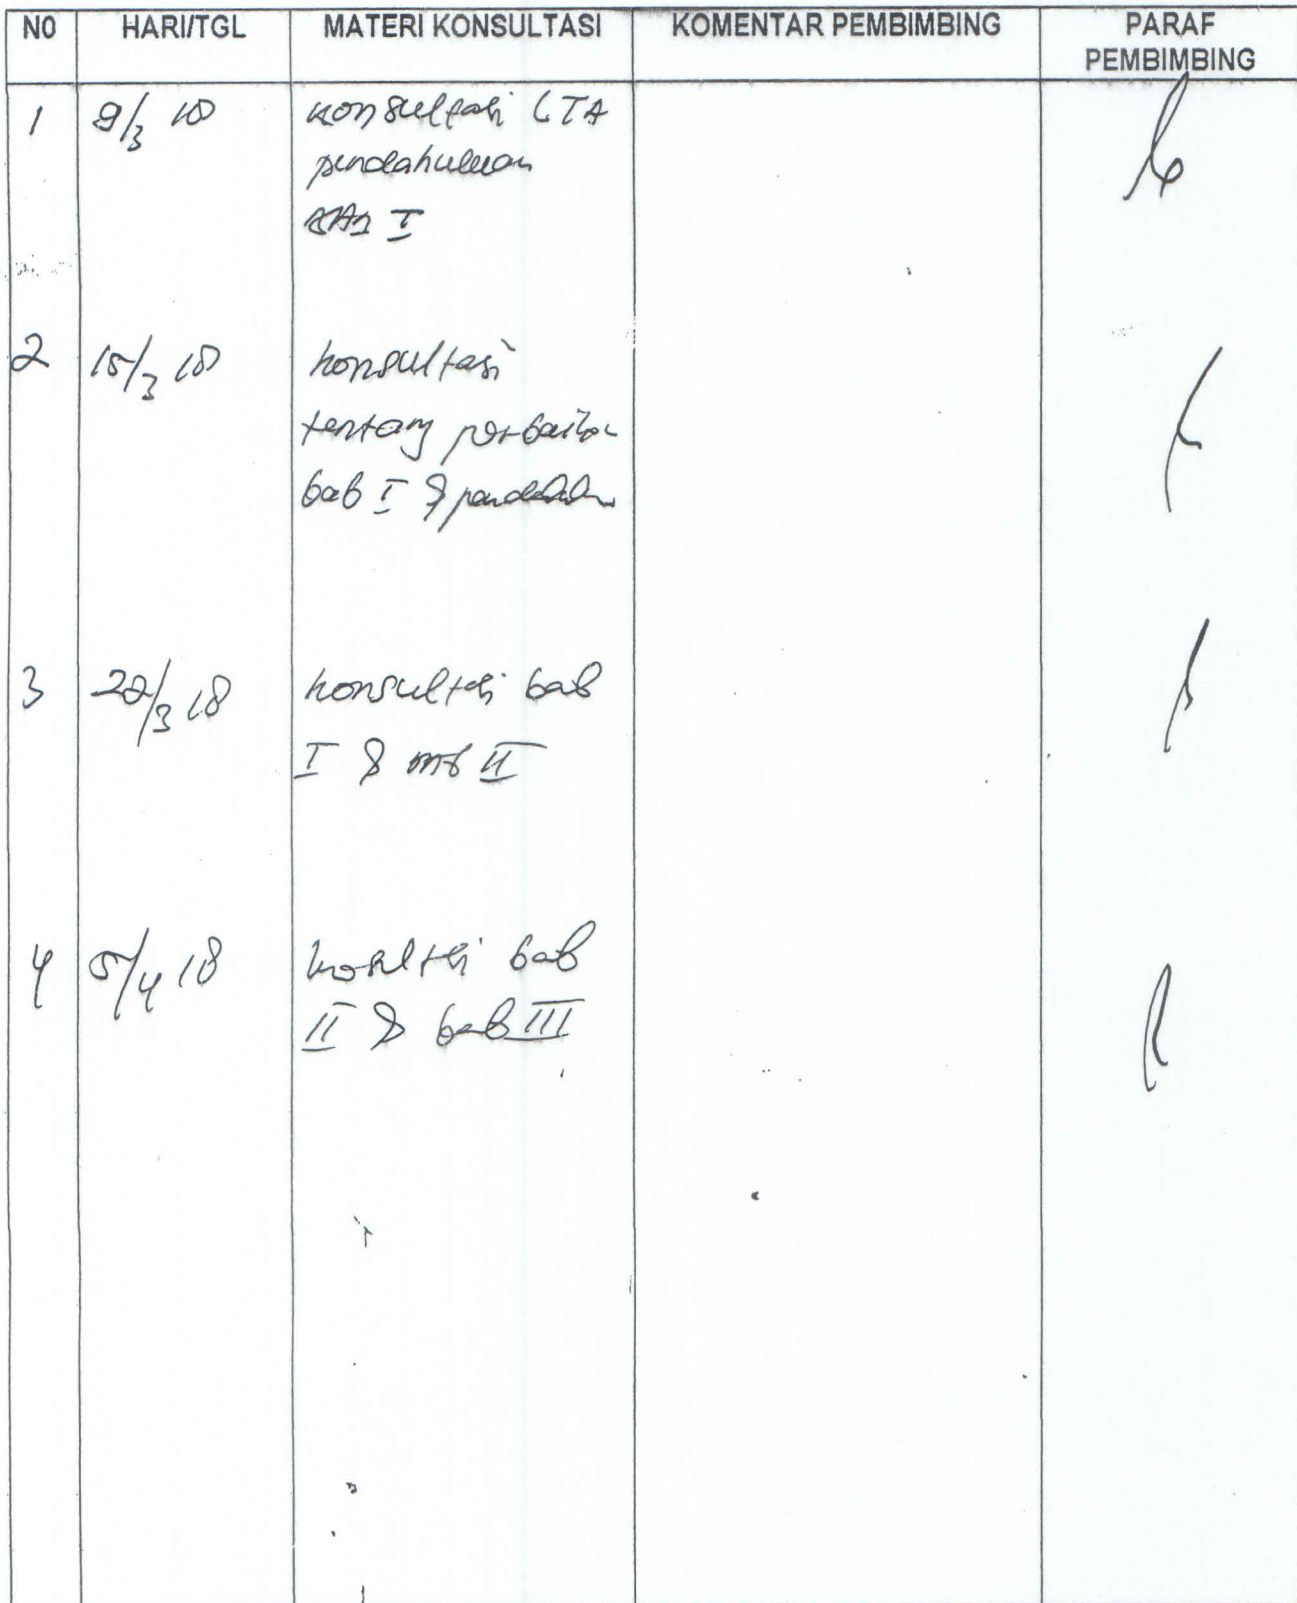 NO HARI/TGL MATERI KONSULTASI KOMENTAR PEMBIMBING PARAF
PEMBIMBING
1 9/3 18 konsultasi LTA
pendahuluan
I
2 15/3 18 konsultasi
tentang perbaikan
bab I &
3 22/3 18 konsultasi bab
I & II
4 5/4 18 bab
II & bab III